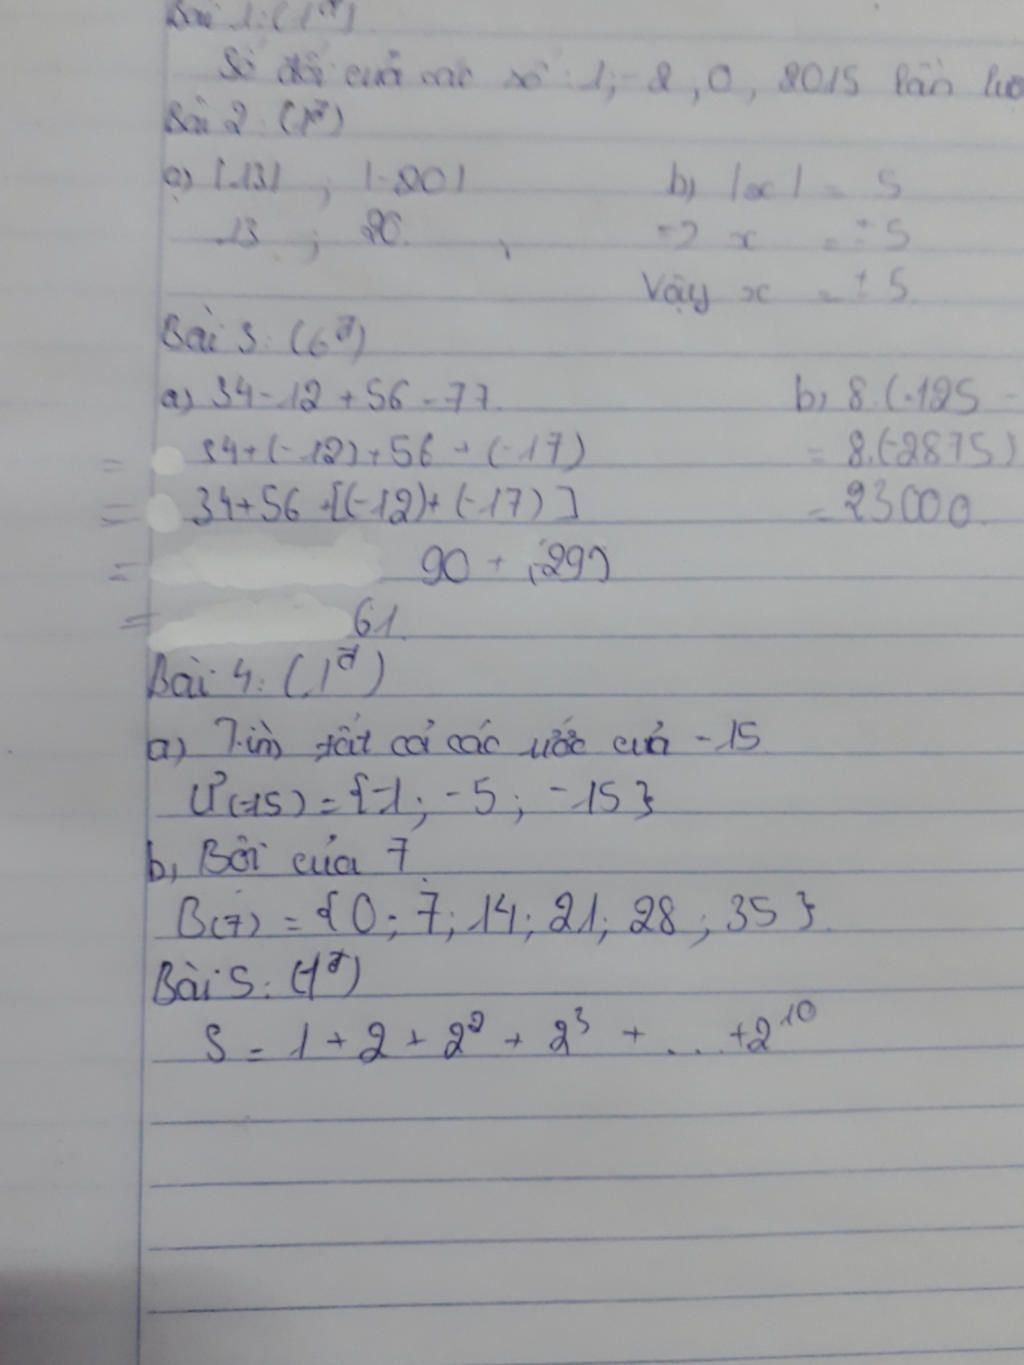 Bài 1: (1đ)
Số đối của các số: 1; -2, 0, 2015 lần lượ
Bài 2: (1đ)
a) |-13| ; |-20| b) |x| = 5
13 ; 20. => x = ±5
Vậy x = ±5.
Bài 3: (6đ)
a) 34-12+56-77. b, 8.(-125 -
= 34+(-12)+56+(-17) = 8.(-2875)
= 34+56+[(-12)+(-17)] = 23000.
= 90 + (-29)
= 61.
Bài 4: (1đ)
a) Tìm tất cả các ước của -15
Ư(-15) = {-1; -5; -15}
b, Bội của 7.
B(7) = {0; 7; 14; 21; 28; 35}.
Bài 5: (1đ)
S = 1 + 2 + 2² + 2³ + ... + 2¹⁰